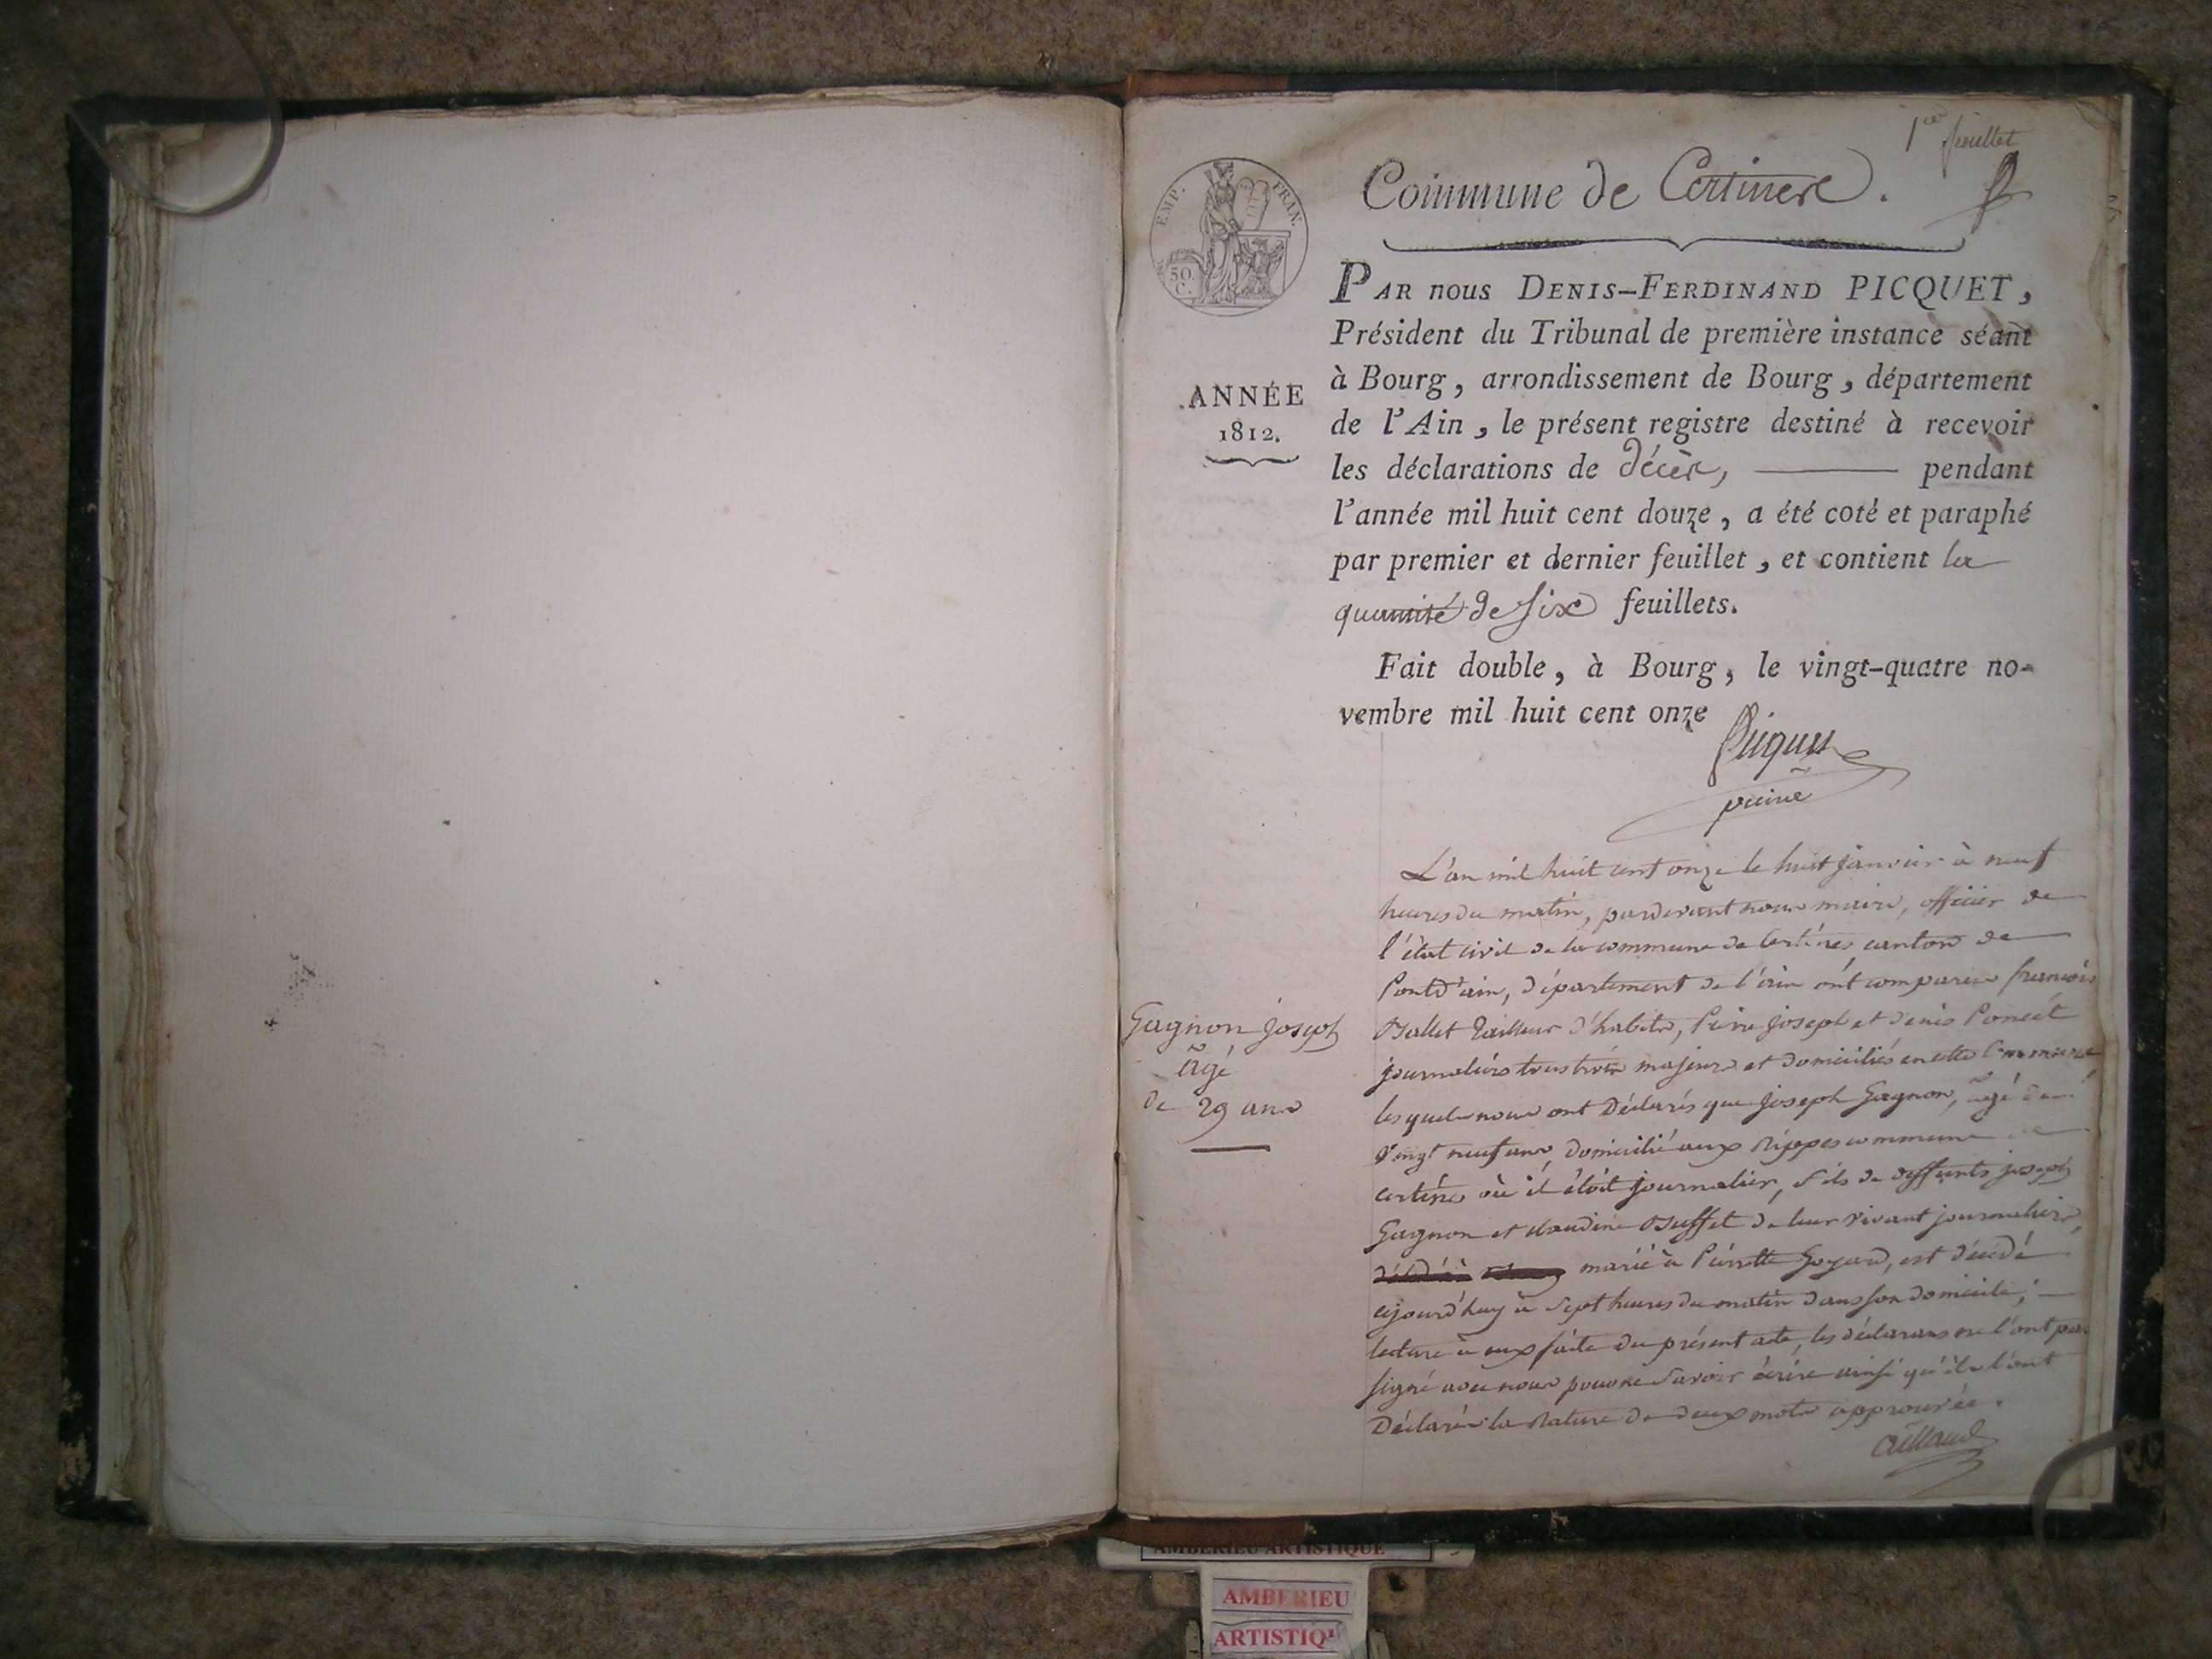 1er feuillet
EMP. FRAN.
50 C.
Commune de Certines.
PAR nous DENIS-FERDINAND PICQUET,
Président du Tribunal de première instance séant
à Bourg, arrondissement de Bourg, département
de l'Ain, le présent registre destiné à recevoir
les déclarations de décès, pendant
l'année mil huit cent douze, a été coté et paraphé
par premier et dernier feuillet, et contient la
quantité de six feuillets.
Fait double, à Bourg, le vingt-quatre no-
vembre mil huit cent onze
ANNÉE
1812.
Picquet
L'an mil huit cent onze le huit janvier à neuf
heures du matin, pardevant nous maire, officier de
l'état civil de la commune de Certines canton de
Pontd'ain, département de l'ain ont comparu françois
tailleur d'habits, Joseph et denis Poncet
journaliers tous trois majeurs et domiciliés en cette Commune
lesquels nous ont déclarés que joseph Gagnon, âgé de
vingt neuf ans, domicilié aux Rippes commune de
certines où il étoit journalier, fils de deffunts joseph
Gagnon et claudine Buffet de leur vivant journaliers,
marié à Pierrette Goyard, est décédé
ajourd'huy à sept heures du matin dans son domicile;
lecture à eux faite du présent acte, les déclarans ne l'ont pas
signé avec nous pour ne savoir écrire ainsi qu'ils l'ont
Déclaré la Rature de deux mots approuvée.
Gagnon joseph
âgé
de 29 ans
AMBERIEU ARTISTIQUE
AMBERIEU
ARTISTIQU